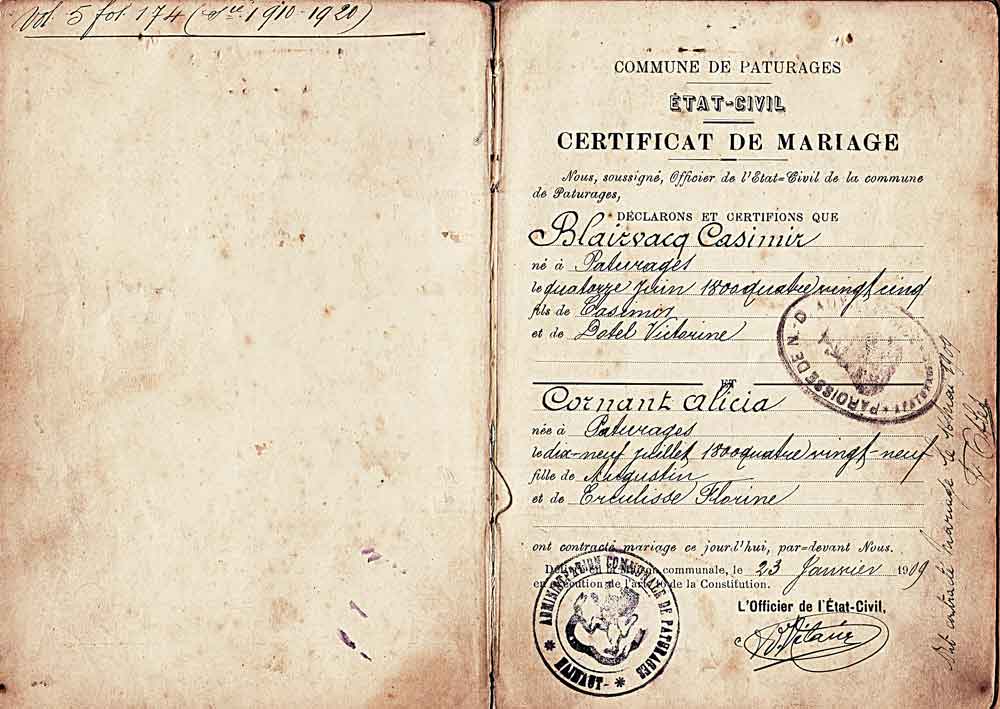 Vol. 5 fol. 174 (1910-1920)
COMMUNE DE PATURAGES
ÉTAT-CIVIL
CERTIFICAT DE MARIAGE
Nous, soussigné, Officier de l'Etat-Civil de la commune
de Paturages,
DÉCLARONS ET CERTIFIONS QUE
Blairvacq Casimir
né à Paturages
le quatorze Juin 1800 quatre vingt cinq
fils de Casimir
et de Dotel Victorine
PAROISSE DE N.-D.
ET
Cornant Alicia
née à Paturages
le dix-neuf juillet 1800 quatre vingt-neuf
fille de Augustin
et de Erculisse Florine
ont contracté mariage ce jourd'hui, par-devant Nous.
communale, le 23 Janvier 1909
en exécution de l'art. de la Constitution.
L'Officier de l'État-Civil,
ADMINISTRATION COMMUNALE DE PATURAGES
* HAINAUT *
mariage le